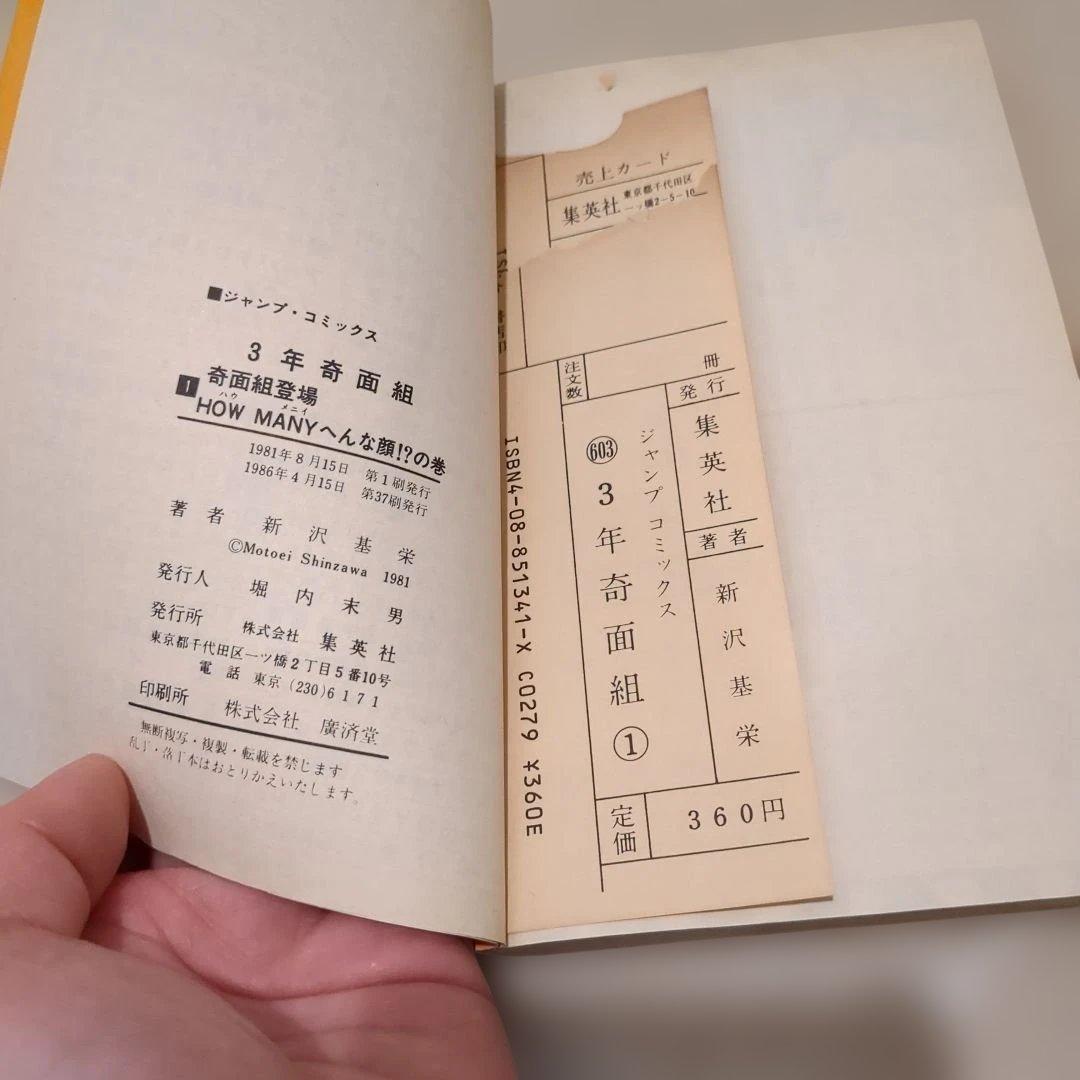 ■ジャンプ・コミックス
3年奇面組
1 奇面組登場
ハウ メニイ
HOW MANYへんな顔!?の巻
1981年8月15日 第1刷発行
1986年4月15日 第37刷発行
著者 新沢基栄
©Motoei Shinzawa 1981
発行人 堀内末男
発行所 株式会社 集英社
東京都千代田区一ツ橋2丁目5番10号
電話 東京(230)6171
印刷所 株式会社 廣済堂
無断複写・複製・転載を禁じます
乱丁・落丁本はおとりかえいたします。
売上カード
集英社 東京都千代田区
一ッ橋2-5-10
冊
注文数
発行
集英社
著者
新沢基栄
ジャンプコミックス
603
3年奇面組①
定価
360円
ISBN4-08-851341-X C0279 ¥360E